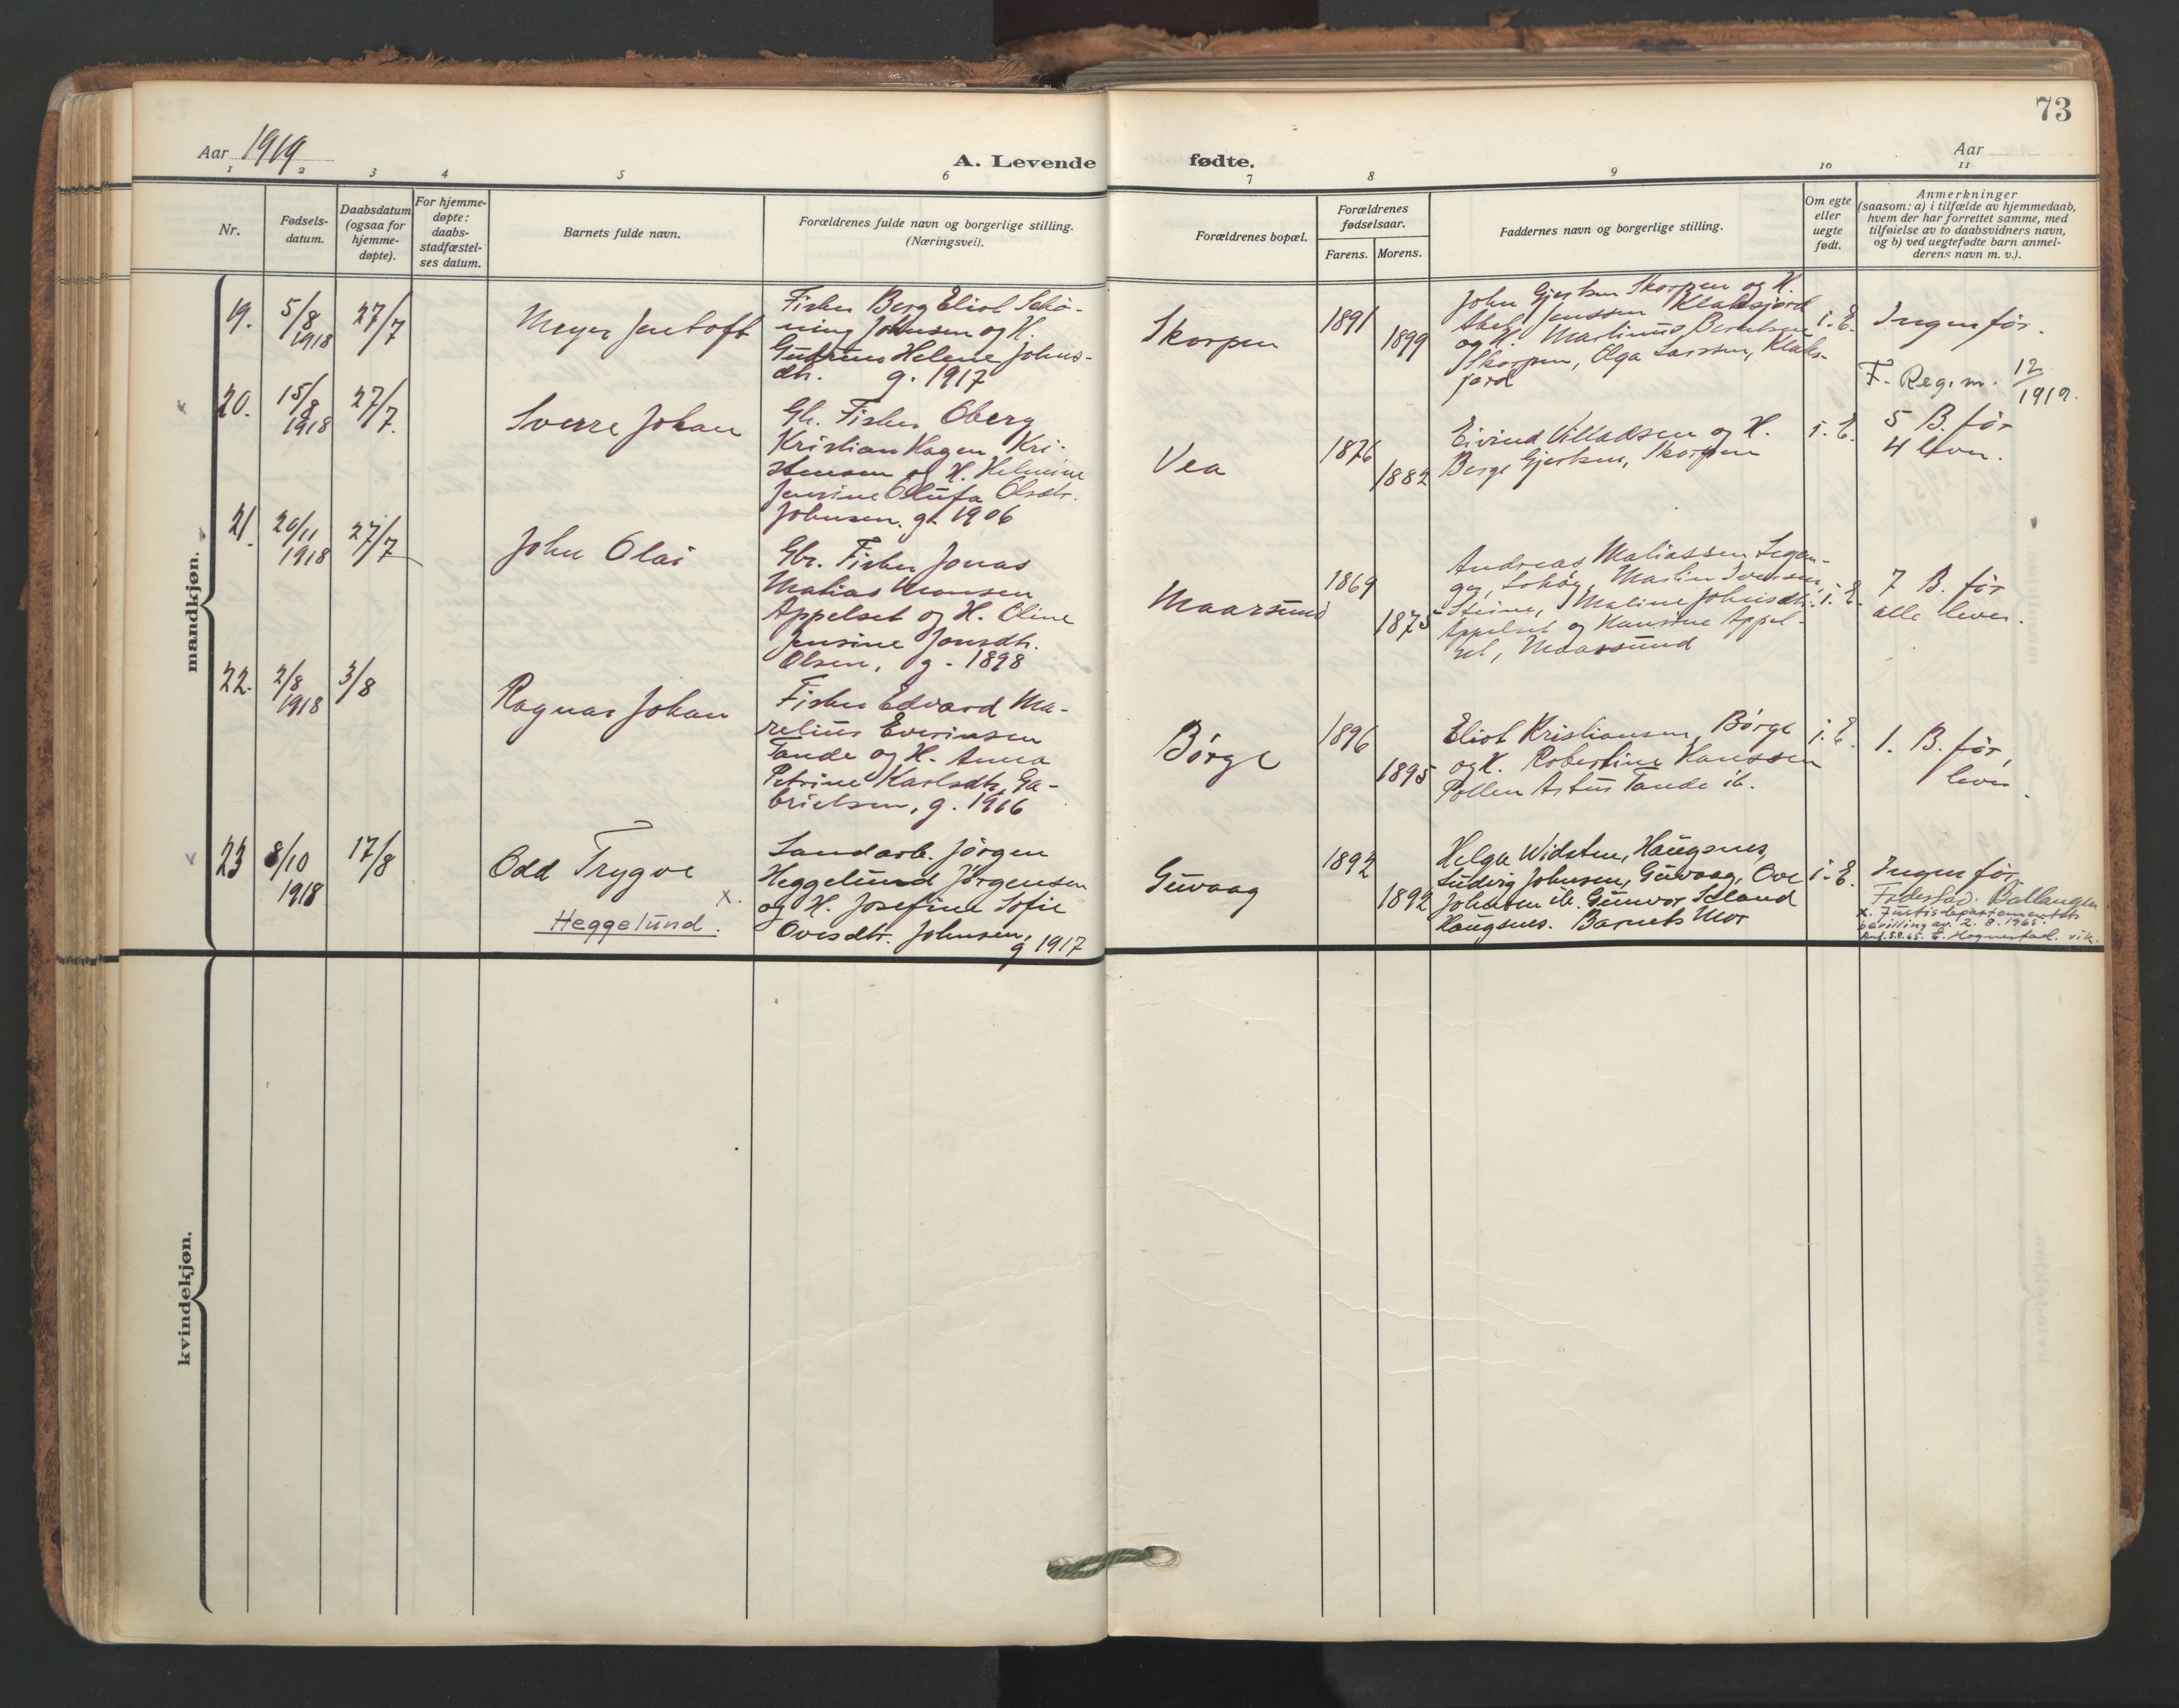 73
Aar 1919
A. Levende
fødte.
Aar
1 2 3 4 5 6 7 8 9 10 11
Nr.
Fødsels-
datum.
Daabsdatum
(ogsaa for
hjemme-
døpte).
For hjemme-
døpte:
daabs-
stadfæstel-
ses datum.
Barnets fulde navn.
Forældrenes fulde navn og borgerlige stilling.
(Næringsvei).
Forældrenes bopæl.
Forældrenes
fødselsaar.
Farens. Morens.
Faddernes navn og borgerlige stilling.
Om egte
eller
uegte
født.
Anmerkninger
(saasom: a) i tilfælde av hjemmedaab,
hvem der har forrettet samme, med
tilføielse av to daabsvidners navn,
og b) ved uegtefødte barn anmel-
derens navn m. v.).
mandkjøn.
19.
5/8
1918
27/7
Meyer Jentoft
Fisker Berg Eliot Schø-
ning Johnsen og H.
Gudrun Helene Johns-
dtr. g. 1917
Skorpen
1891
1899
John Gjertsen Skorpen og H.
Abel Jenssen Klaksjord
og H. Martinus Berntsen
Skorpen, Olga Larssen, Klaks-
jord
i. E.
Ingen før.
F. Reg. m. 12/1919.
20.
15/8
1918
27/7.
Sverre Johan
Gbr. Fisker Oberg
Kristian Hagen Kri-
stensen og H. Helmine
Jensine Olufa Olsdtr.
Johnsen. g. 1906
Vea
1876
1882
Eivind Villadsen og H.
Berge Gjertsen, Skorpen
i. E.
5 B. før
4 lever.
21.
20/11
1918
27/7
John Olai
Gbr. Fisker Jonas
Matias Monsen
Appelset og H. Oline
Jensine Jonsdtr.
Olsen, g. 1898
Maarsund
1869
1875
Andreas Matiassen
Martin Iversen,
Steine, Maline Johnsdtr.
Appelset og Hansine Appel-
set, Maarsund
i. E.
7 B. før
alle lever.
22.
2/8
1918
3/8
Ragnar Johan
Fisker Edvard Ma-
relius Everinsen
Tande og H. Anna
Petrine Karlsdtr. Ga-
brielsen, g. 1916
Børge
1896
1895
Eliot Kristiansen, Børge
og H. Robertine Hanssen
Pollen Artur Tande ib.
i. E.
1. B. før,
lever.
23
8/10
1918
17/8
Odd Trygve
x.
Heggelund.
Landarb. Jørgen
Heggelund Jørgensen
og H. Josefine Sofie
Ovesdtr. Johnsen,
g 1917
Guvaag
1892
1892
Helga Widsten, Haugsnes,
Ludvig Johnsen, Guvaag, Ove
Johnsen ib. Gunvor Seland
Haugsnes. Barnets Mor
i. E.
Ingen før
Fødested: Ballangen
x. Justisdepartementets
bevilling av. 2. 8. 1965.
Anf. 5.8.65. E. Hognestad. vik.
kvindekjøn.